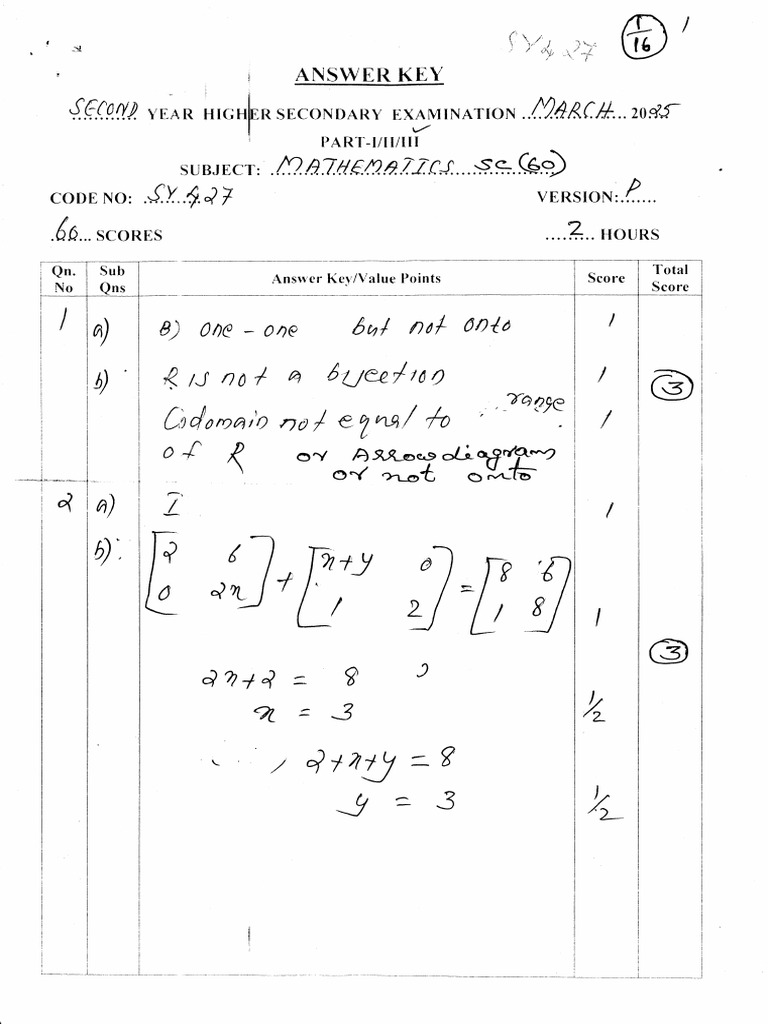 SY 427
1/16
1
ANSWER KEY
SECOND YEAR HIGHER SECONDARY EXAMINATION MARCH 2025
PART-I/II/III ✓
SUBJECT: MATHEMATICS SC (60)
CODE NO: SY 427 VERSION: P
60 SCORES 2 HOURS
Qn. No Sub Qns Answer Key/Value Points Score Total Score
1 a) B) one - one but not onto 1
b) R is not a bijection 1 (3)
Codomain not equal to range 1
of R or Arrow diagram
or not onto
2 a) I 1
b) [2 6; 0 2x] + [x+y 0; 1 2] = [8 6; 1 8] 1
(3)
2x+2 = 8
x = 3 1/2
, 2+x+y = 8
y = 3 1/2